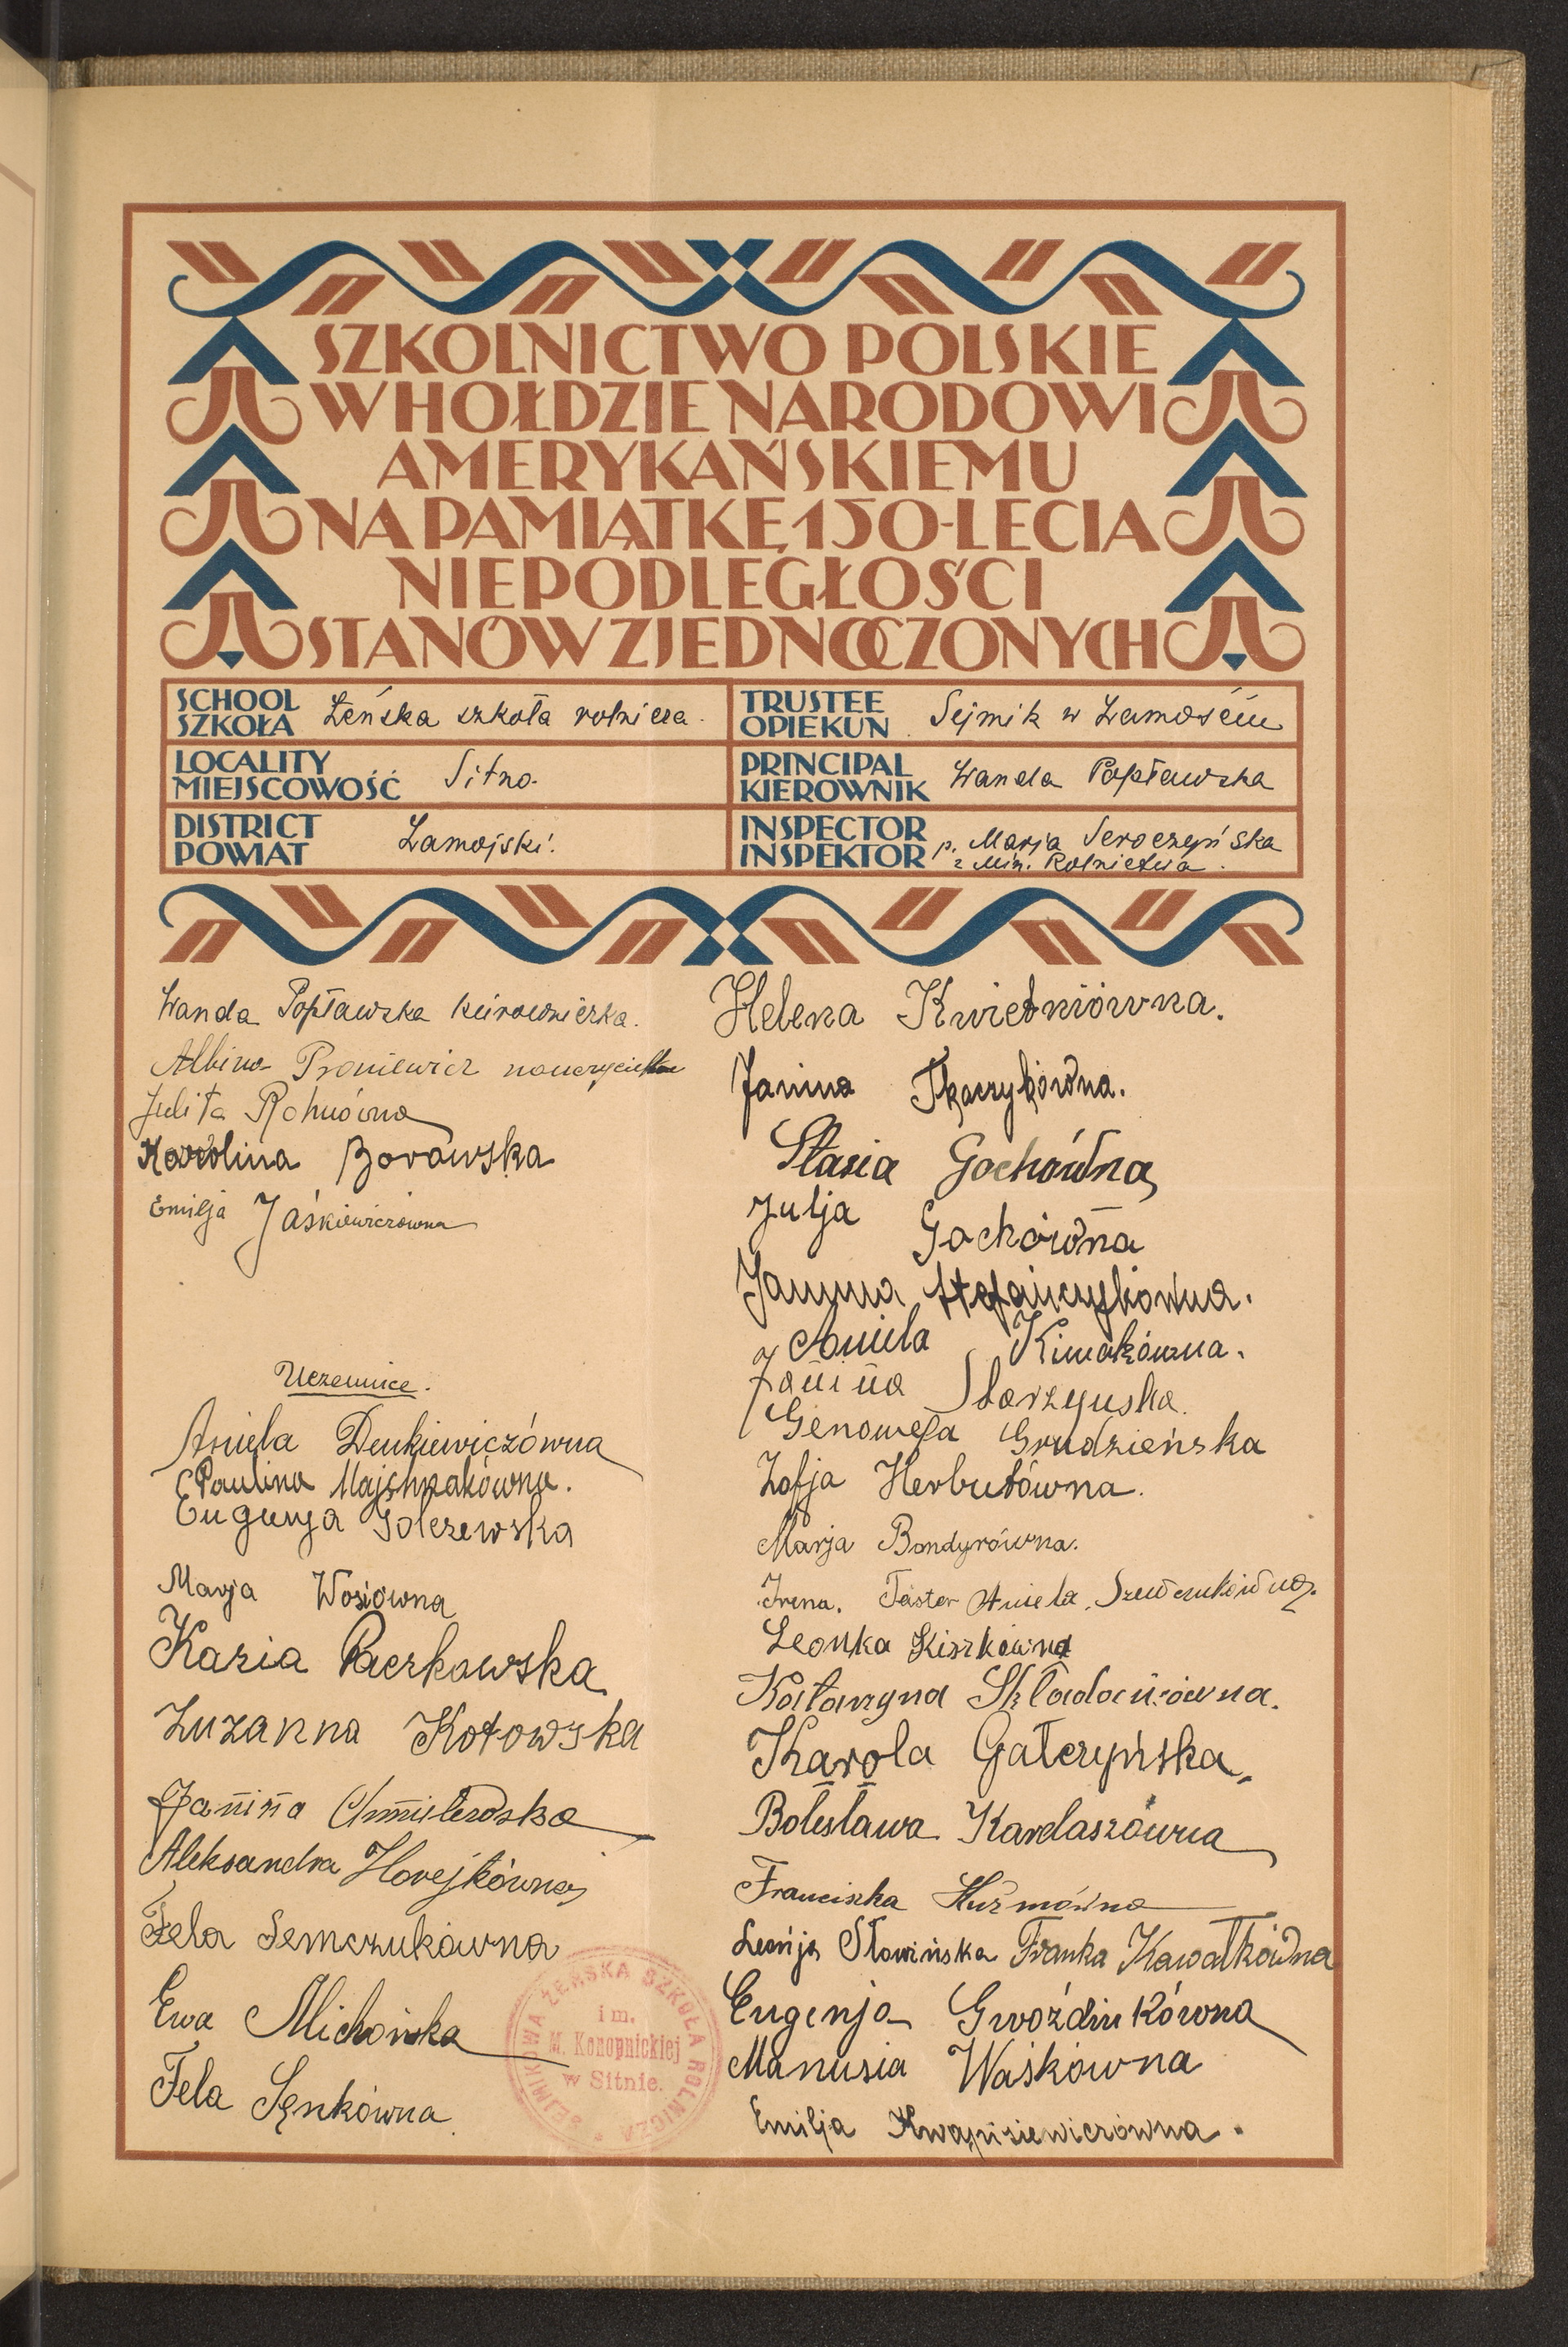 SZKOLNICTWO POLSKIE
W HOŁDZIE NARODOWI
AMERYKAŃSKIEMU
NA PAMIĄTKĘ 150-LECIA
NIEPODLEGŁOŚCI
STANÓW ZJEDNOCZONYCH
SCHOOL
SZKOŁA Żeńska szkoła rolnicza.
TRUSTEE
OPIEKUN Sejmik w Zamościu
LOCALITY
MIEJSCOWOŚĆ Sitno.
PRINCIPAL
KIEROWNIK Wanda Popławska
DISTRICT
POWIAT Zamojski.
INSPECTOR
INSPEKTOR p. Marja Seroczyńska
z Min. Rolnictwa.
Wanda Popławska kierowniczka.
Albina Proniewicz nauczycielka
Julita Rohnówna
Karolina Borowska
Emilja Jaśkiewiczówna
Uczennice.
Aniela Denkiewiczówna
Paulina Majchrzakówna.
Eugenja Golczewska
Marja Wosiówna
Kazia Paczkowska
Zuzanna Kotowska
Janina Chmielewska
Aleksandra Horejkówna
Fela Semczukówna
Ewa Michońska
Fela Sęnkówna
Helena Kwietniówna.
Janina Tkaczykówna.
Stasia Gochówna
Julja Gochówna
Janina Stefańczykówna.
Aniela Kimakówna.
Janina Starzyńska.
Genowefa Grudzieńska
Zofja Herbutówna.
Marja Bondyrówna.
Irena. Taster Aniela. Szewczukówna.
Leonka Kiszkówna
Katarzyna Składaniówna.
Karola Gałczyńska,
Bolesława Kardaszówna
Franciszka Kuzmówna
Leonja Słowińska Franka Kawałkówna
Eugenja Gwoździukówna
Manusia Waśkówna
Emilja Kwapisiewiczówna.
SEJMIKOWA ŻEŃSKA SZKOŁA ROLNICZA
im.
M. Konopnickiej
w Sitnie.